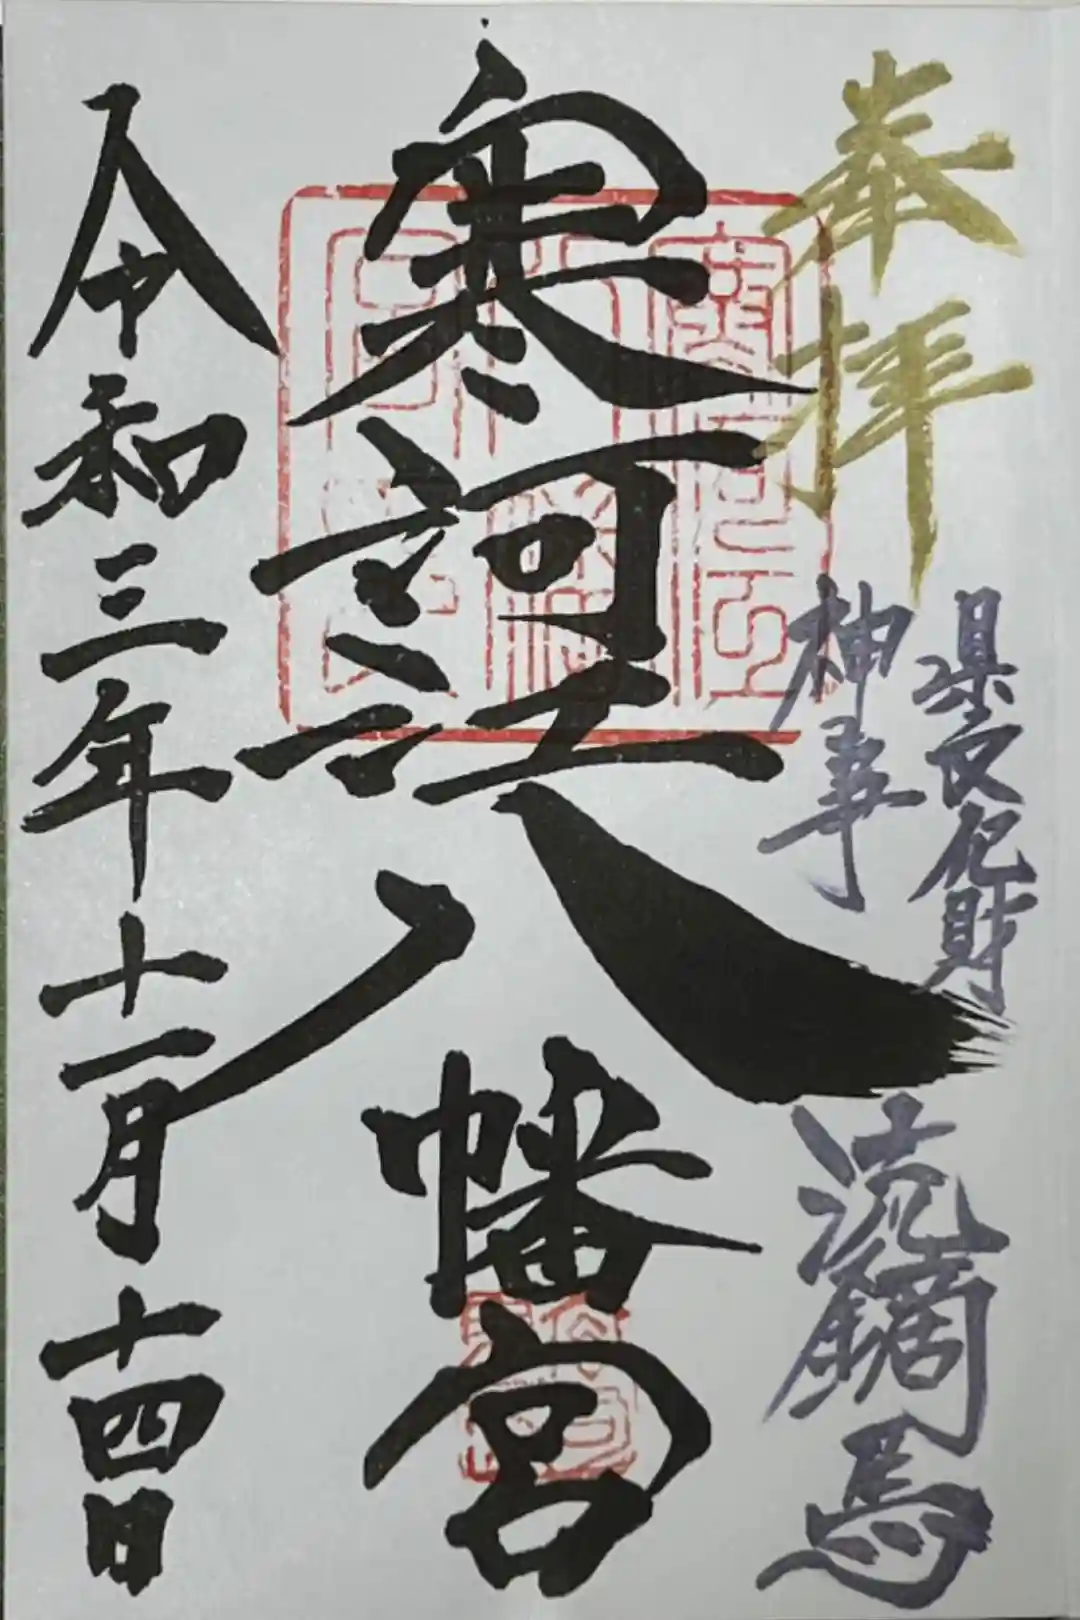 奉拝
県文化財
神事
流鏑馬
寒河江八幡宮
令和三年十一月十四日